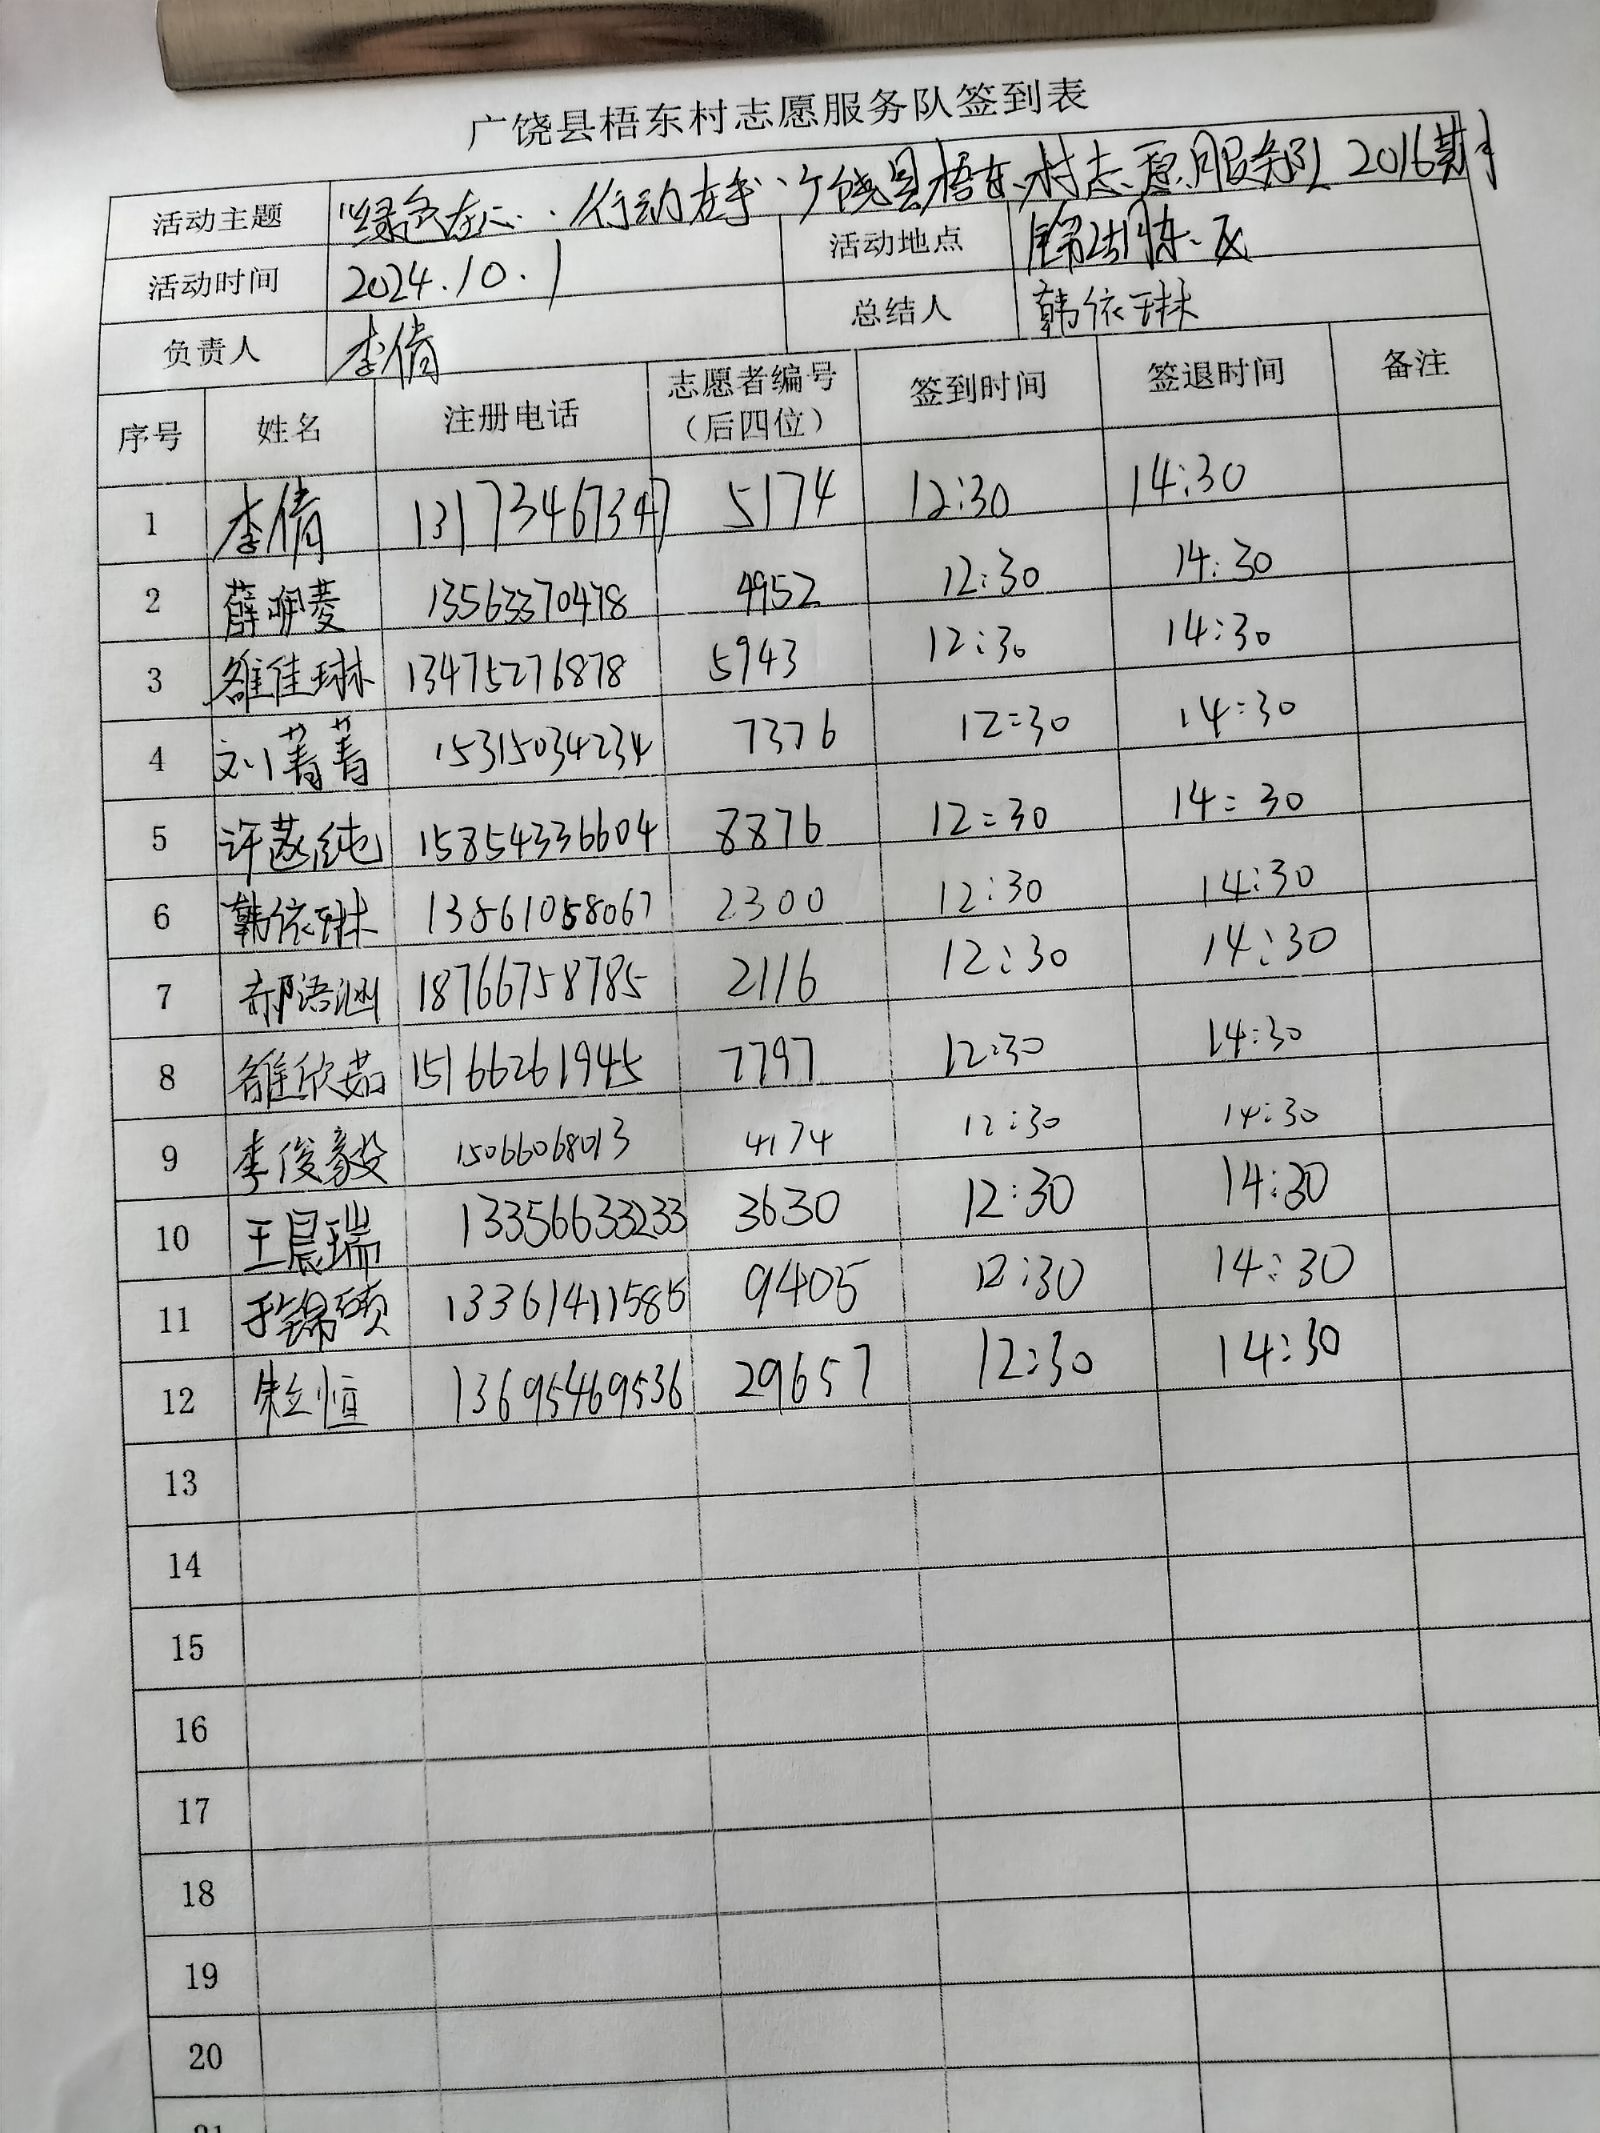 广饶县梧东村志愿服务队签到表
活动主题 "绿色在心，行动在手"广饶县梧东村志愿服务队2016期
活动时间 2024.10.1 活动地点
负责人 李倩 总结人 韩依琳
序号 姓名 注册电话 志愿者编号（后四位） 签到时间 签退时间 备注
1 李倩 13173467347 5174 12:30 14:30
2 薛明菱 13563370478 4952 12:30 14:30
3 雒佳琳 13475276878 5943 12:30 14:30
4 刘菁菁 15315034234 7376 12:30 14:30
5 许 纯 15854336604 8876 12:30 14:30
6 韩依琳 13861058067 2300 12:30 14:30
7 郝浯涵 18766758785 2116 12:30 14:30
8 雒欣茹 15166261945 7797 12:30 14:30
9 李俊毅 15066068013 4174 12:30 14:30
10 王晨瑞 13356633233 3630 12:30 14:30
11 于锦硕 13361411585 9405 12:30 14:30
12 朱立恒 13695469536 29657 12:30 14:30
13
14
15
16
17
18
19
20